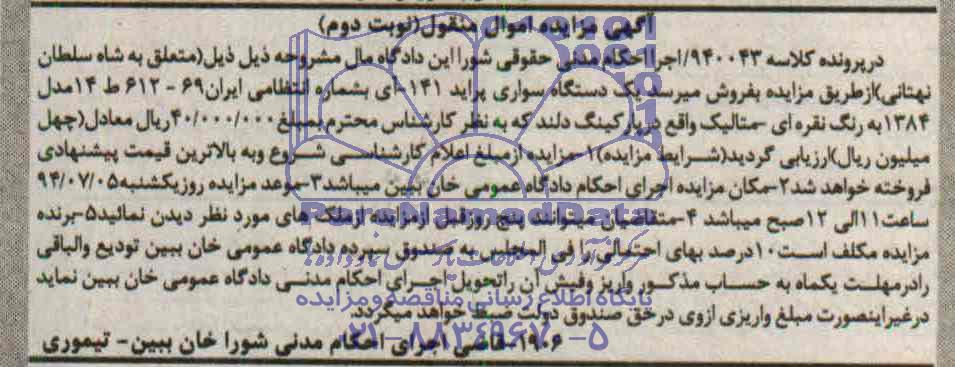 آگهی مزایده اموال منقول(نوبت دوم)
درپرونده کلاسه ۹۴۰۰۴۳/اجرا احکام مدنی حقوقی شورا این دادگاه مال مشروحه ذیل ذیل(متعلق به شاه سلطان
نهتانی)ازطریق مزایده بفروش میرسد یک دستگاه سواری پراید ۱۴۱-آی بشماره انتظامی ایران۶۹ - ۶۱۲ ط ۱۴مدل
۱۳۸۴به رنگ نقره ای -متالیک واقع درپارکینگ دلند که به نظر کارشناس محترم بمبلغ ۴۰/۰۰۰/۰۰۰ریال معادل(چهل
میلیون ریال)ارزیابی گردید(شرایط مزایده)۱-مزایده ازمبلغ اعلام کارشناسی شروع وبه بالاترین قیمت پیشنهادی
فروخته خواهد شد۲-مکان مزایده اجرای احکام دادگاه عمومی خان ببین میباشد۳-موعد مزایده روزیکشنبه۹۴/۰۷/۰۵
ساعت۱۱الی ۱۲صبح میباشد ۴-متقاضیان میتوانند پنج روزقبل ازمزایده ازملک های مورد نظر دیدن نمائید۵-برنده
مزایده مکلف است۱۰درصد بهای احتمالی را فی المجلس به صندوق سپرده دادگاه عمومی خان ببین تودیع والباقی
رادرمهلت یکماه به حساب مذکور واریز وفیش آن راتحویل اجرای احکام مدنی دادگاه عمومی خان ببین نماید
درغیراینصورت مبلغ واریزی ازوی درحق صندوق دولت ضبط خواهد میگردد.
۱۹۰۶-قاضی اجرای احکام مدنی شورا خان ببین- تیموری
ParsNamadData
پایگاه اطلاع رسانی مناقصه و مزایده
۰۲۱-۸۸۳۴۹۶۷۰-۵